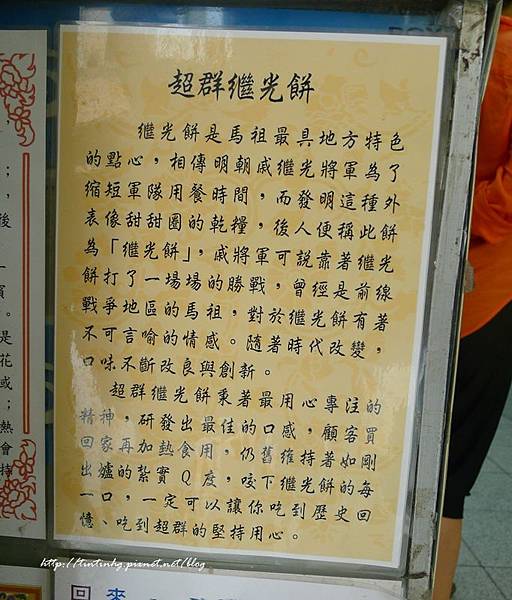 超群繼光餅
繼光餅是馬祖最具地方特色
的點心，相傳明朝戚繼光將軍為了
縮短軍隊用餐時間，而發明這種外
表像甜甜圈的乾糧，後人便稱此餅
為「繼光餅」，戚將軍可說靠著繼光
餅打了一場場的勝戰，曾經是前線
戰爭地區的馬祖，對於繼光餅有著
不可言喻的情感。隨著時代改變，
口味不斷改良與創新。
超群繼光餅秉著最用心專注的
精神，研發出最佳的口感，顧客買
回家再加熱食用，仍舊維持著如剛
出爐的紮實Q度，咬下繼光餅的每
一口，一定可以讓你吃到歷史回
憶、吃到超群的堅持用心。
；
，
後
一
賓
。
是
花
或
；
熱
會
持
http://tintinhg.pixnet.net/blog
回來